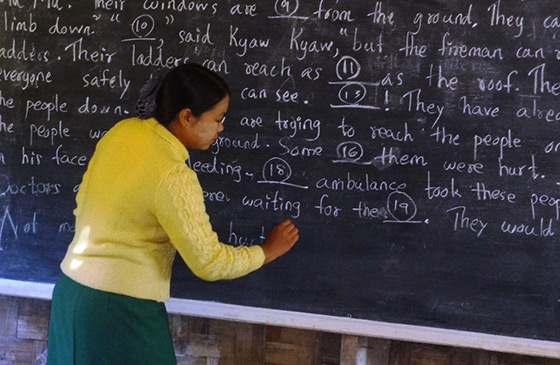 their windows are (9) from the ground. They
limb down." " (10) ", said Kyaw Kyaw, "but the fireman can
adders. Their ladders can reach as (11) as the roof. The
everyone safely can see. (13) ! They have alrea
the people down. are trying to reach the people on
the people ground. Some (16) them were hurt.
his face eeding. (18) ambulance took these peop
Doctors ere waiting for the (19) . They would
Not